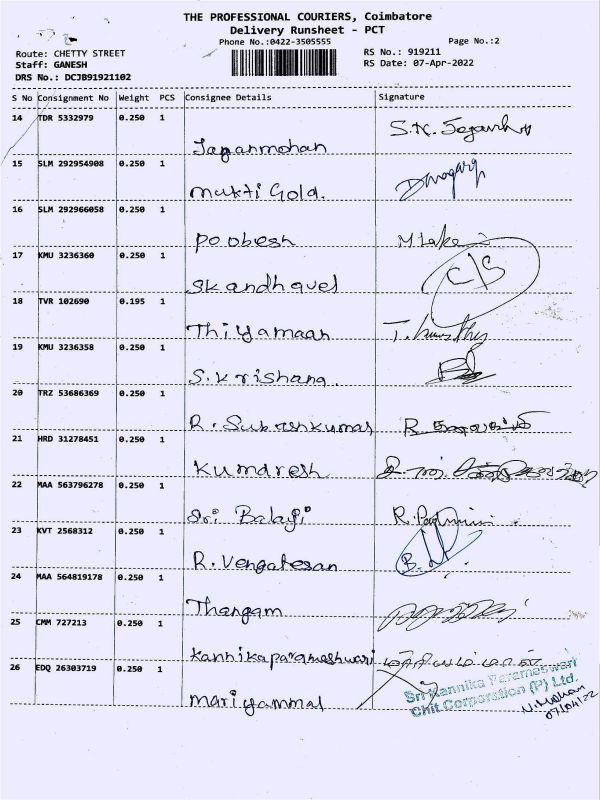 THE PROFESSIONAL COURIERS, Coimbatore
Delivery Runsheet - PCT
Phone No.:0422-3505555 Page No.:2
Route: CHETTY STREET RS No.: 919211
Staff: GANESH RS Date: 07-Apr-2022
DRS No.: DCJB91921102
S No Consignment No Weight PCS Consignee Details Signature
14 TDR 5332979 0.250 1
Jaganmohan
15 SLM 292954908 0.250 1
mukti Gold.
16 SLM 292966058 0.250 1
poobesh
17 KMU 3236360 0.250 1
skandhavel C/S
18 TVR 102690 0.195 1
Thiyamaan
19 KMU 3236358 0.250 1
S.krishana.
20 TRZ 53686369 0.250 1
R. Subashkumar
21 HRD 31278451 0.250 1
kumaresh
22 MAA 563796278 0.250 1
Sri Balaji R. Padmini
23 KVT 2568312 0.250 1
R. Vengatesan
24 MAA 564819178 0.250 1
Thangam
25 CMM 727213 0.250 1
kannikaparameshwari
26 EDQ 26303719 0.250 1
mariyammal
Sri Kannika Parameswari
Chit Corporation (P) Ltd.
N.Mohan
07/04/22